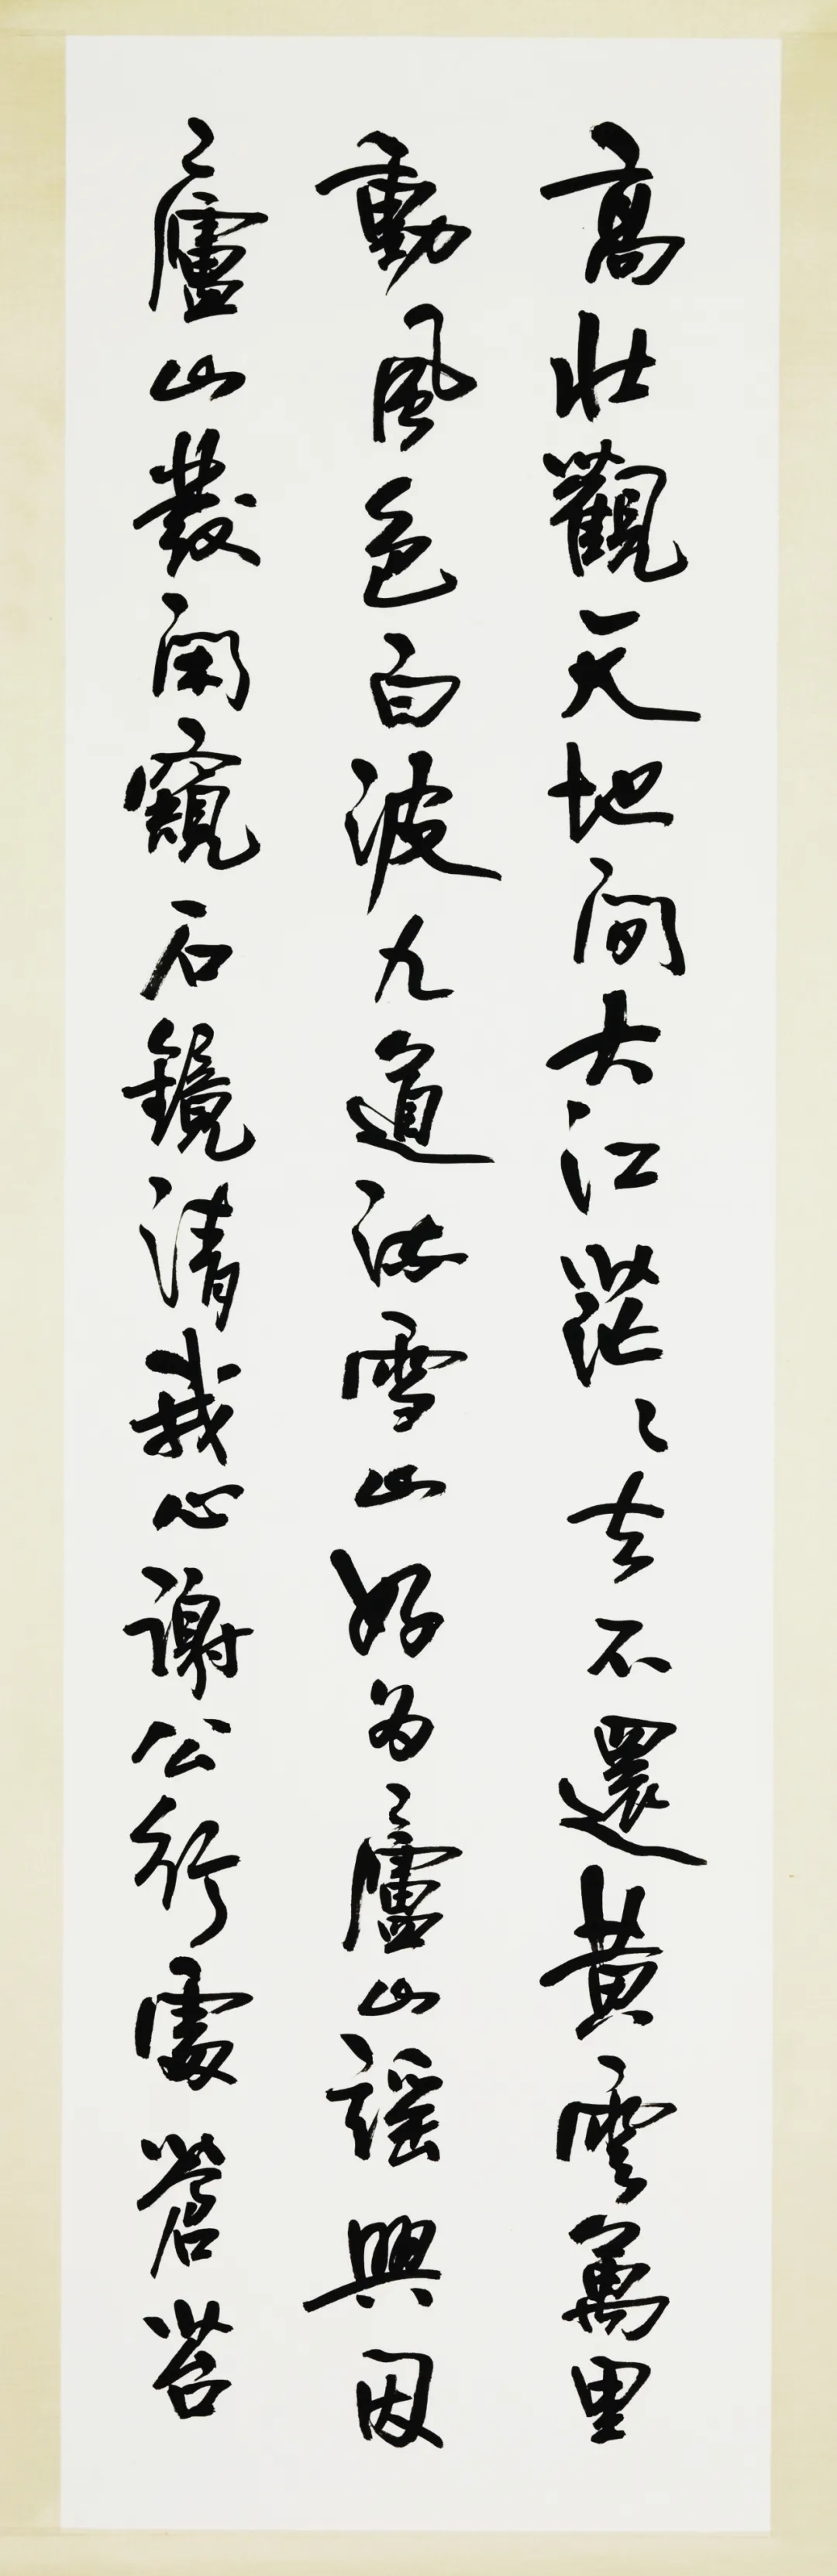 高壯觀天地間大江茫〻去不還黃雲萬里
動風色白波九道流雪山好為廬山謠興因
廬山發閑窺石鏡清我心謝公行處蒼苔